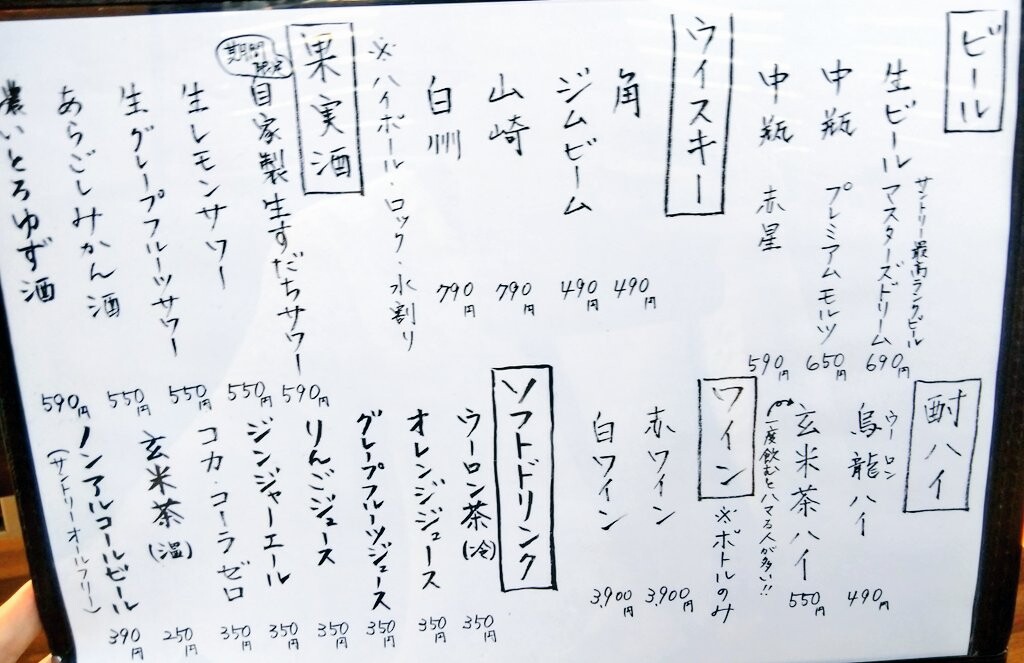 ビール
サントリー最高ランクビール
生ビール マスターズドリーム 690円
中瓶 プレミアムモルツ 650円
中瓶 赤星 590円
ウイスキー
角 490円
ジムビーム 490円
山崎 790円
白州 790円
※ハイボール・ロック・水割り
果実酒
期間限定
自家製生すだちサワー 590円
生レモンサワー 550円
生グレープフルーツサワー 550円
あらごしみかん酒 550円
濃いとろゆず酒 590円
酎ハイ
ウーロン
烏龍ハイ 490円
玄米茶ハイ 550円
一度飲むとハマる人が多い!!
ワイン
※ボトルのみ
赤ワイン 3,900円
白ワイン 3,900円
ソフトドリンク
ウーロン茶(冷) 350円
オレンジジュース 350円
グレープフルーツジュース 350円
りんごジュース 350円
ジンジャーエール 350円
コカ・コーラゼロ 350円
玄米茶(温) 250円
ノンアルコールビール 390円
(サントリーオールフリー)